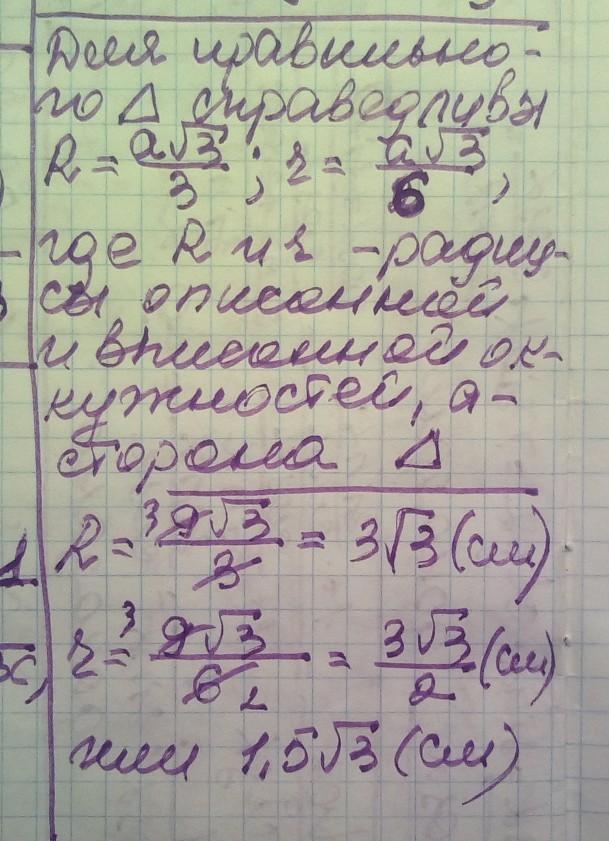 Для правильно-
го Δ справедливы
R = a√3/3 ; r = a√3/6 ,
где R и r - радиу-
сы описанной
и вписанной ок-
ружностей, a -
сторона Δ
R = 9√3/3 = 3√3 (см)
3
r = 9√3/6 = 3√3/2 (см)
3 2
или 1,5√3 (см)